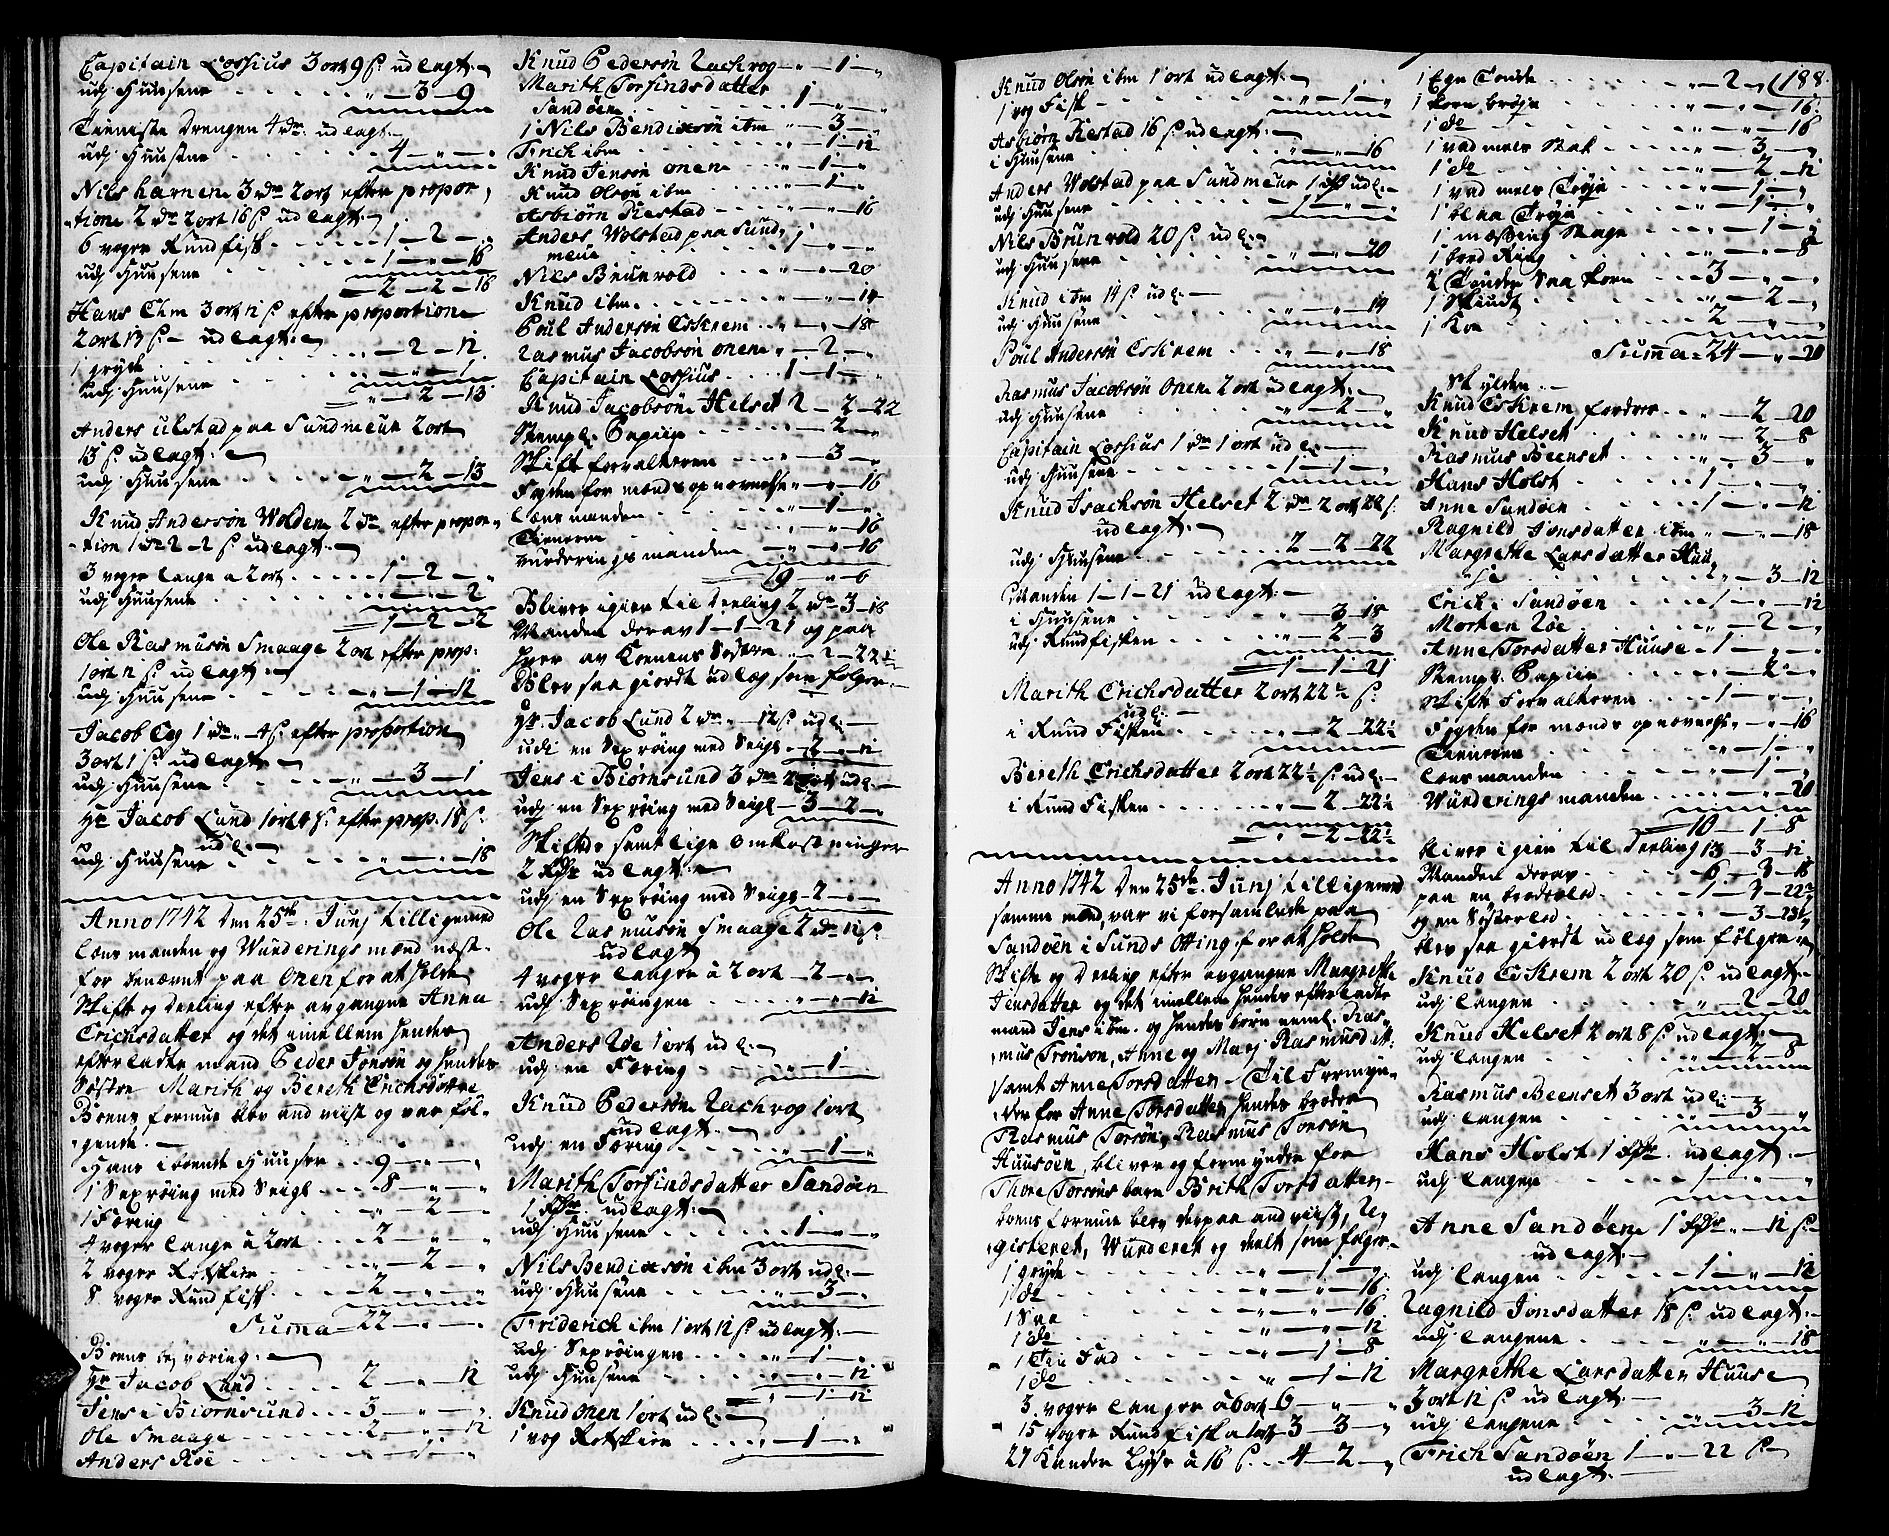 Capitain Lossius 3 ort 9 s: udlagt.
udj Huusene " — 3 — 9
Tieniste Drengen 4 dr. udlagt.
udj Huusene 4 — " — "
Nils harnem 3 dr 2 ort efter propor-
tion 2 dr 2 ort 16 s udlagt.
6 voger Rundfisk 1 — 2 — "
udj Huusene 1 — " — 16
2 — 2 — 16
Hans Thm 3 ort 12 s efter proportion
2 ort 13 s — udlagt.
1 gryde " — 2 — 12
udj Huusene " — " — 1
" — 2 — 13
Anders ulstad paa Sundmeur 2 ort
13 s: udlagt:
udj Huusene " — 2 — 13
Knud Andersøn Wolden 2 dr efter propor-
tion 1 dr 2 — 2 s: udlagt.
3 voger Lange a 2 ort 1 — 2 — "
udj Huusene " — " — 2
1 — 2 — 2
Ole Rasmusøn Smaage 2 ort efter prop:
1 ort 12 s: udlagt
udj Huusene " — 1 — 12
Jacob Eeg 1 dr " 4 s: efter proportion
3 ort 1 s: udlagt
udj Huusene " — 3 — 1
Hr Jacob Lund 1 ort 4 s: efter prop: 18 s:
udl:
udj Huusene " — " — 18
Anno 1742 Den 25de Junj tilligemed
Lensmanden og Wurderings mænd næst-
for benævnt paa Onen for at holde
Skift og Deeling efter avgangne Anna
Erichsdatter og det imellem hendes
efterladte mand Peder Jonsøn og hendes
Søstre Marith og Bereth Erichsdøttre
Boens formue blev and viist og var föl-
gende.
Hans iboende Huuser 9 — " — "
1 Sexröing med Seigl 8 — " — "
1 Færing " — 2 — "
4 voger Lange à 2 ort 2 — " — "
2 voger Rotskier " — 2 — "
8 voger Rundfisk 2 — " — "
Suma 22 — " — "
Boens besværing:
Hr Jacob Lund 2 — " — 12
Jens i Biörnsund 3 — " — "
Ole Smaage 2 — " — 12
Anders Röe " — 1 — "
Knud Pedersøn Rachvog " — 1 — "
Marith Torfindsdatter
Sandøen 1 — " — "
1 Nils Bendixsøn ibm " — 3 — "
Frich ibm " — 1 — 12
Knud Jensøn onen " — 1 — "
Knud Olsøn ibm " — 1 — "
Asbiørn Restad " — " — 16
Anders Wolstad paa Sund-
meur 1 — " — "
Nils Brunvold " — " — 20
Knud ibm " — " — 14
Poul Andersøn Eskrem " — " — 18
Rasmus Jacobsøn onen " — 2 — "
Capitain Lossius 1 — 1 — "
Knud Jacobsøn Helset 2 — 2 — 22
Stempl. Papiir " — 2 — "
Skift forvalteren " — 3 — "
Fogden for mænds opnævnelse " — " — 16
Lensmanden " — 1 — "
Tieneren " — " — 16
Wurderings manden " — " — 16
19 — " — 6
Bliver igien til Deeling 2 dr 3 — 18
Manden derav 1 — 1 — 21 og paa
hver av Konens Søstre " — 2 — 22½
Blev saa giordt udlæg som følger.
Hr. Jacob Lund 2 dr " — 12 s: udl:
udi en Sexröing med Seigl 2 — " — 12
Jens i Biørnsund 3 dr 2 ort udl:
udj en Sexröing med Seigl 3 — 2 — "
Skiftes samtlige Omkostninger
2 Rdr udlagt:
udj en Sexröing med Seigl 2 — " — "
Ole Rasmusøn Smaage 2 dr 12 s:
udlagt
4 voger Langer à 2 ort 2 — " — "
udj Sexröingen " — " — 12
Anders Röe 1 ort udl:
udj en Færing " — 1 — "
Knud Pedersøn Rachvog 1 ort
udlagt.
udj en Færing " — 1 — "
Marith Torfindsdatter Sandøen
1 Rdr. udlagt:
udj Huusene 1 — " — "
Nils Bendixsøn ibm 3 ort udl:
udj Huusene " — 3 — "
Friderich ibm 1 ort 12 s: udlagt:
udj Sexröingen " — 1 — "
udj Huusene " — " — 12
" — 1 — 12
Knud onen 1 ort udl:
1 vog Rotskier " — 1 — "
188
Knud Olsøn ibm 1 ort udlagt.
1 vog Fisk " — 1 — "
Asbiørn Restad 16 s: udlagt:
i Huusene " — " — 16
Anders Wolstad paa Sundmeur 1 dr udl:
udj Huusene 1 — " — "
Nils Brunvold 20 s: udl:
udj Huusene " — " — 20
Knud ibm 14 s: udl:
udj Huusene " — " — 14
Poul Andersøn Eskrem " — " — 18
Rasmus Jacobsøn Onen 2 ort udlagt:
udj Huusene " — 2 — "
Capitain Lossius 1 dr 1 ort udl:
udj Huusene 1 — 1 — "
Knud Isachsøn Helset 2 dr 2 ort 22 s:
udlagt.
udj Huusene 2 — 2 — 22
Manden 1 — 1 — 21 udlagt:
i Huusene " — 3 — 18
udj Rundfisken " — 2 — 3
1 — 1 — 21
Marith Erichsdatter 2 ort 22½ s:
udl:
i Rund Fisken " — 2 — 22½
Bereth Erichsdatter 2 ort 22½ s: udl:
i Rund Fisken " — 2 — 22½
" — 2 — 22½
Anno 1742 Den 25de Junj tilligemed
samme mænd, var vi forsamlede paa
Sandøen i Sunds Otting, for at holde
Skifte og Deeling efter avgangne Margrethe
Jensdatter og det imellem hendes efterladte
mand Jens ibm. og hendes børn neml. Ras-
mus Tronsøn, Anne og Marj Rasmusdatt:
samt Anne Torsdatter — Til Formyn-
der for Anne Torsdatter hendes broder
Rasmus Torsøn, Rasmus Torsøn
Huusøen, bliver og formynder for
Thore Torsøns barn Brith Torsdatter.
boens formue blev derpaa and viist, Re-
gisteret, Wurderet og deelt som følger.
1 gryde " — 1 — "
1 do " — " — 16
1 Saa " — " — 16
1 do " — " — 12
1 Fad " — 1 — 8
1 do " — 1 — 12
3 voger Langer à 6 ort 6 — " — "
15 voger Rundfisk a 1 ort 3 — 3 — "
27 Kander Lyse à 16 s: 4 — 2 — "
1 Ege Tønde " — 2 — "
1 " — " — 16
1 do " — " — 16
1 vadmels Stak " — 3 — "
1 do " — 2 — 12
1 vadmels Tröje " — 1 — "
1 blaa Tröje " — 1 — "
1 mæssing Stage " — 1 — "
1 bred Ring " — " — 8
2 Tønder Saa korn 3 — " — "
1 Skiudt " — 2 — "
1 Koe 2 — " — "
Suma 24 — " — 20
Skylden.
Knud Eskrem fordrer " — 2 — 20
Knud Helset " — 2 — 8
Rasmus Beenset " — 3 — "
Hans Holst 1 — " — "
Anne Sandøen 1 — " — 12
Ragnild Jonsdatter ibm " — " — 18
Margrethe Larsdatter Huu-
se " — 3 — 12
Erich i Sandøen 1 — " — 12
Morten Röe " — 2 — "
Anne Torsdatter Huuse 1 — " — "
Stempl. Papiir " — 2 — "
Skift Forvalteren 1 — " — "
Fogden for mænds opnævnelse " — " — 16
Tieneren " — 1 — "
Lensmanden " — 1 — "
Wurderings manden " — " — 20
10 — 1 — 8
bliver igien til Deeling 13 — 3 — 12
Manden derav 6 — 3 — 18
paa en broderlod 1 — 3 — 22
og en Søsterlod " — 3 — 23
blev saa giordt udlæg som fölger
Knud Eskrem 2 ort 20 s: udlagt.
udj Langer " — 2 — 20
Knud Helset 2 ort 8 s: udlagt.
udj Langen " — 2 — 8
Rasmus Beenset 3 ort udl:
udj Langer " — 3 — "
Hans Holst 1 Rdr. udlagt.
udj Langen 1 — " — "
Anne Sandøen 1 Rdr " — 12 s:
udlagt.
udj Langen 1 — " — 12
Ragnild Jonsdatter 18 s: udlagt:
udj Langene " — " — 18
Margrethe Larsdatter Huuse
3 ort 12 s: udlagt.
udj Langene " — 3 — 12
Frich Sandøen 1 — " — 22 s
udlagt.